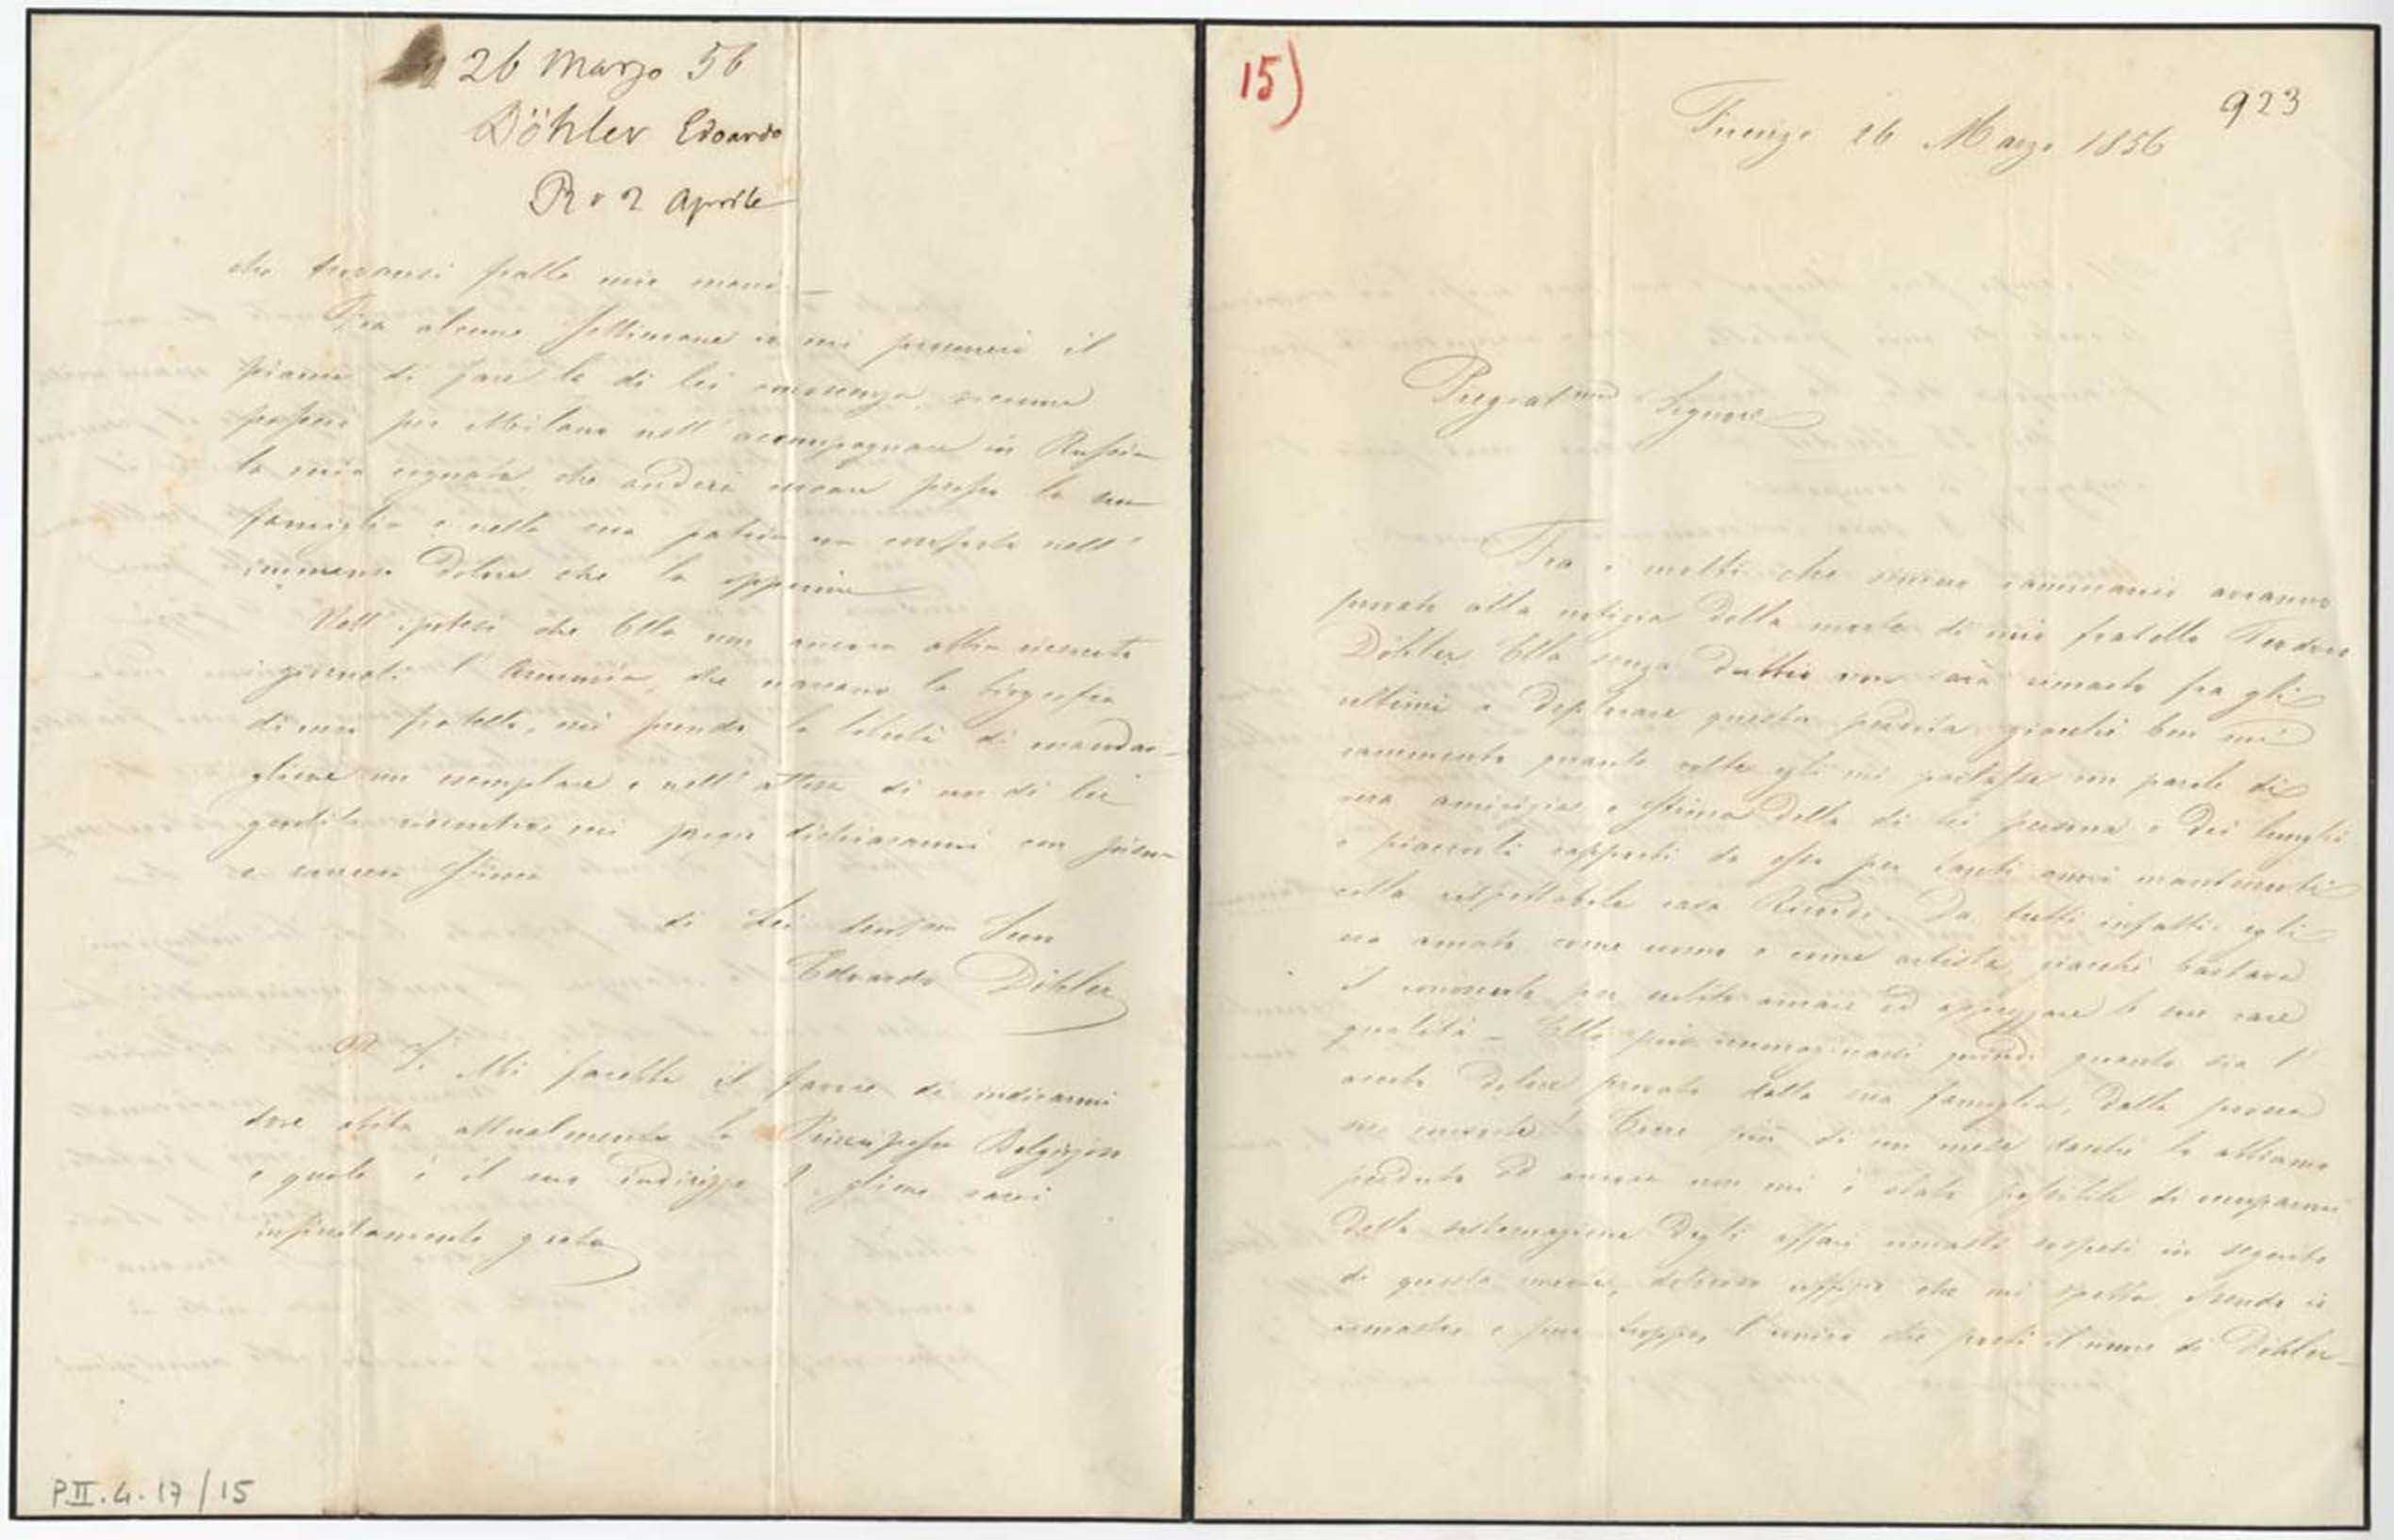 26 Marzo 56
Döhler Edoardo
R. 2 Aprile
che trovansi fralle mie mani._
Fra alcune settimane io mi procurerò il
piacere di fare la di lei conoscenza, siccome
passerò per Milano nell' accompagnare in Russia
la mia cognata, che anderà presso la sua
famiglia e nella sua patria un conforto nell'
immenso dolore che la opprime
Nell' ipotesi che Ella non ancora abbia ricevuto
giornali l' Armonia, che narrano la biografia
di mio fratello, mi prendo la libertà di mandar-
gliene un esemplare e nell' attesa di un di lei
gentile riscontro mi pregio dichiararmi con piena
e sincera stima
di Lei devmo Servo
Edoardo Döhler
P. S. Mi farebbe il favore di indicarmi
dove abita attualmente la Principessa Belgiojoso
e quale è il suo indirizzo? gliene sarei
infinitamente grato
P II. 4. 17 / 15
15)
923
Firenze 26 Marzo 1856
Pregiatmo Signore
Fra i molti che sincero rammarico avranno
provato alla notizia della morte di mio fratello Teodoro
Döhler Ella senza dubbio non sarà rimasto fra gli
ultimi a deplorare questa perdita, giacchè ben mi
rammento quante volte egli mi parlasse con parole di
vera amicizia e stima della di lei persona e dei lunghi
e piacevoli rapporti da esso per tanti anni mantenuti
colla rispettabile casa Ricordi. Da tutti infatti egli
era amato come uomo e come artista, giacchè bastava
il conoscerlo per subito amare ed apprezzare le sue rare
qualità _ Ella può immaginarsi quindi quanto sia l'
acuto dolore provato dalla sua famiglia, dalla povera
sua consorte! Corre più di un mese dacchè lo abbiamo
perduto ed ancora non mi è stato possibile di occuparmi
della sistemazione degli affari rimasti sospesi in seguito
di questa morte, doloroso uffizio che mi spetta, essendo io
rimasto e pur troppo, l'unico che porti il nome di Döhler_